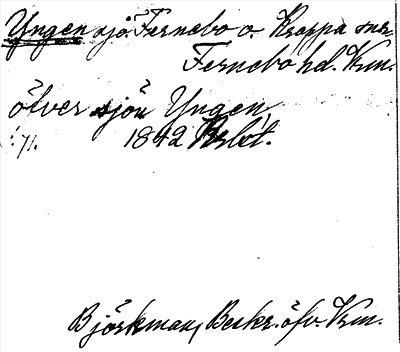 Yngen sjö. Fernebo o. Kroppa snr
Fernebo hd. Vrm.
öfver sjön Yngen
:71. 1842 Brlöt.
Björkman, Beskr. öfv. Vrm.